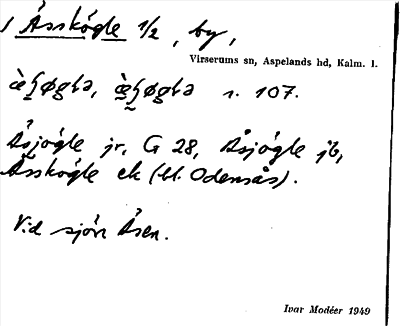 Ässkögle 1/2, by,
Virserums sn, Aspelands hd, Kalm. l.
s. 107.
Åsjögle jr, G 28, Åsjögle jb,
Ässkögle ek (bl. Odensås).
Vid sjön Åsen.
Ivar Modéer 1949